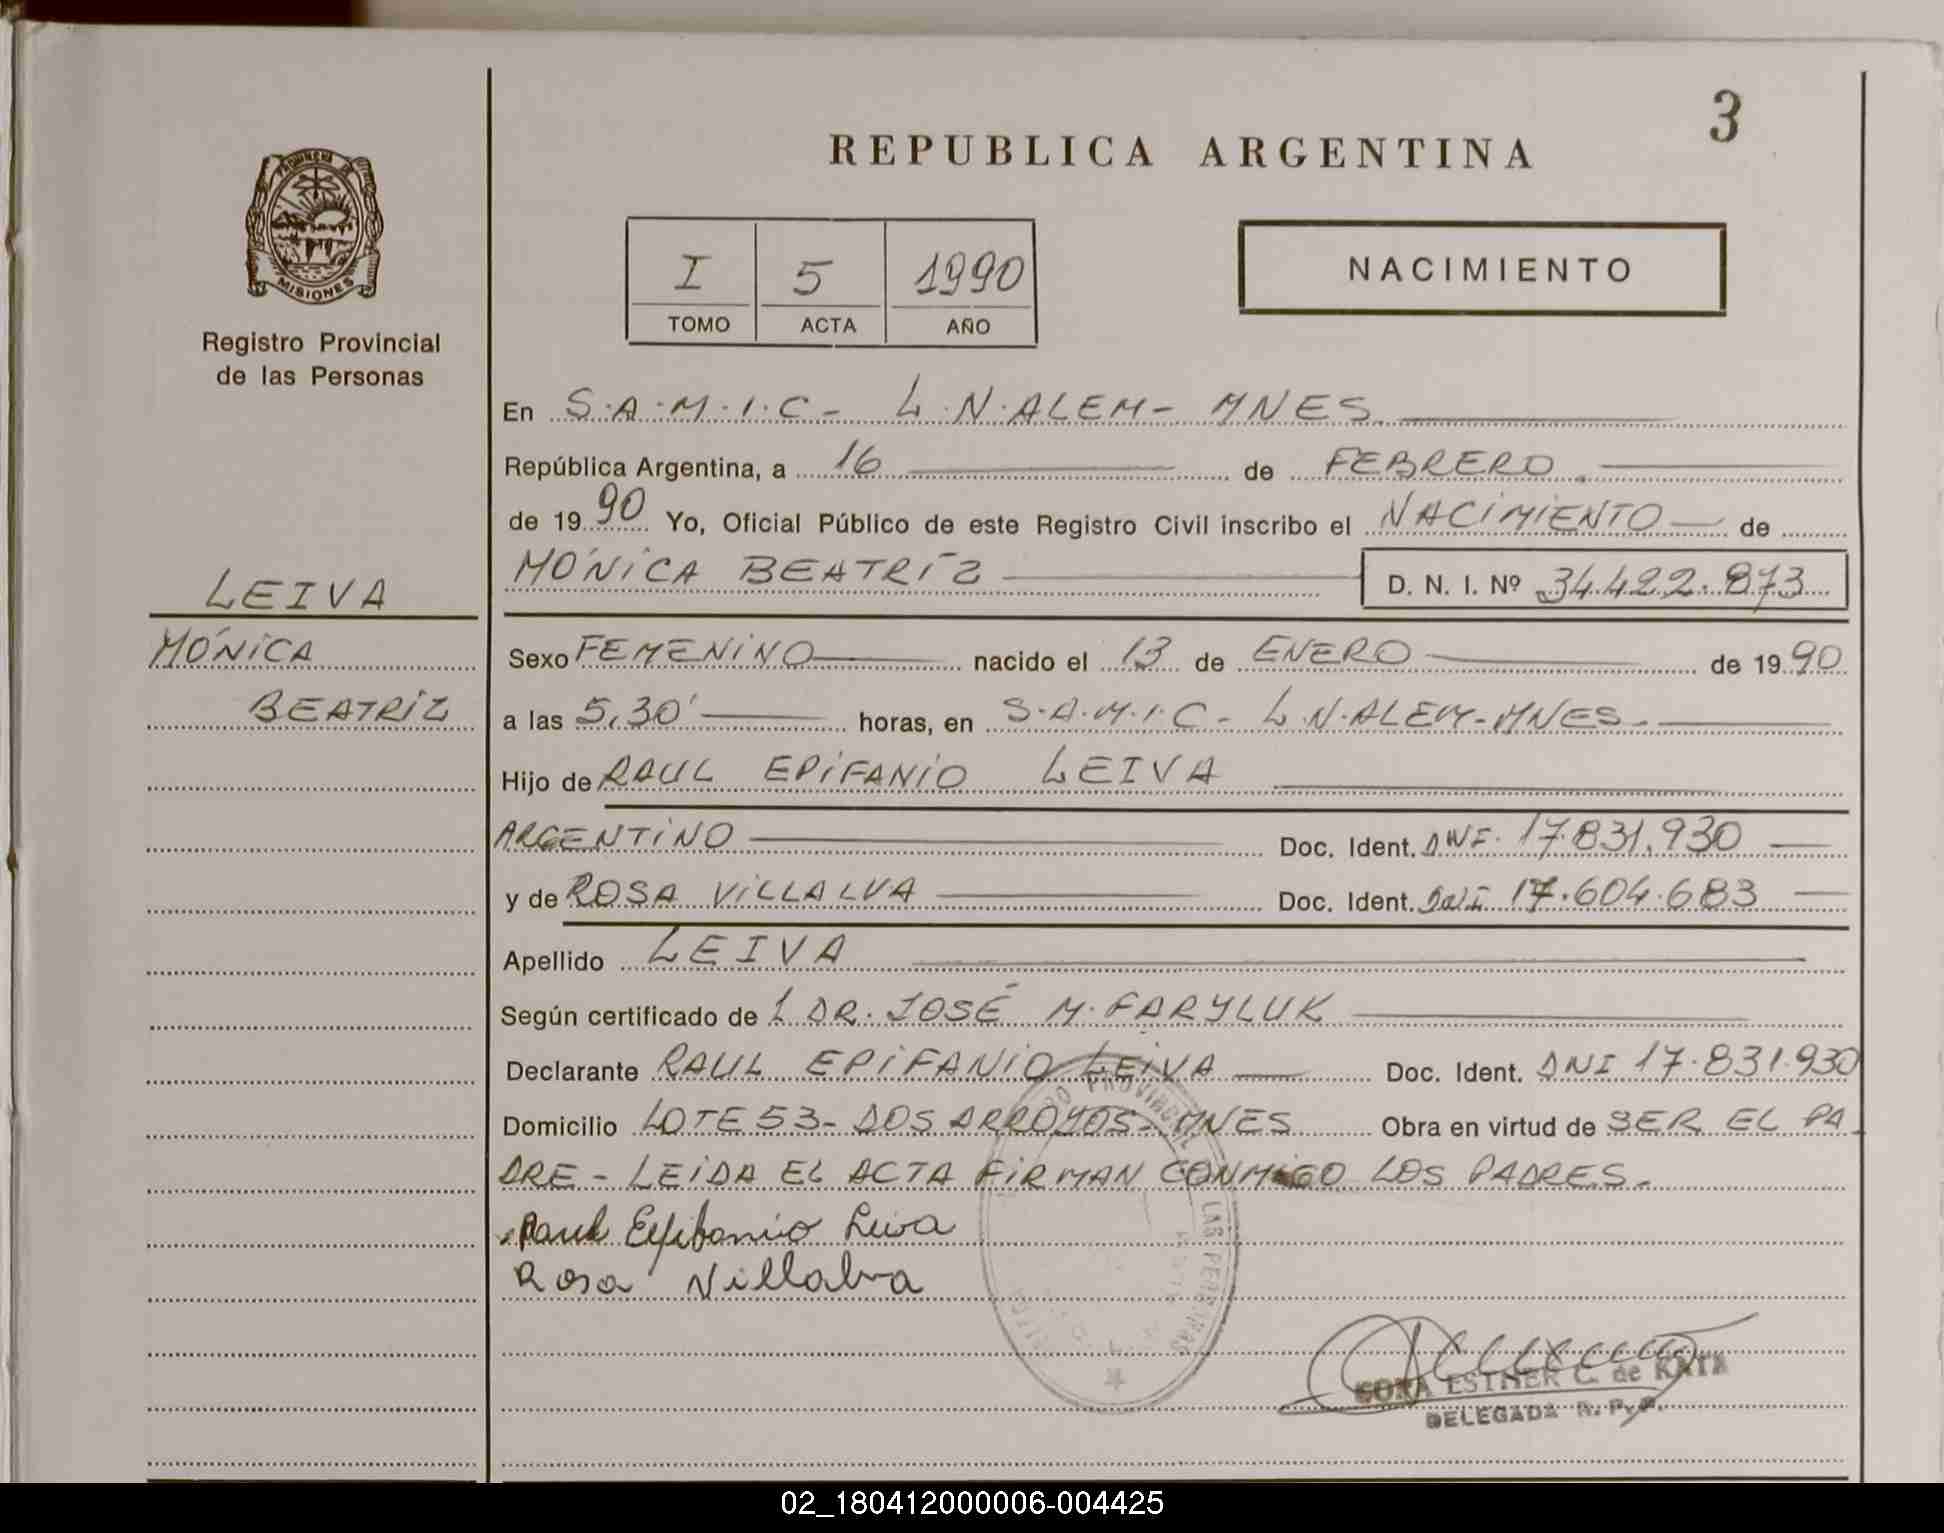 3
REPUBLICA ARGENTINA
PROVINCIA DE
MISIONES
Registro Provincial
de las Personas
I 5 1990
TOMO ACTA AÑO
NACIMIENTO
En S.A.M.I.C- L.N.ALEM- MNES
República Argentina, a 16 de FEBRERO
de 1990 Yo, Oficial Público de este Registro Civil inscribo el NACIMIENTO de
MÓNICA BEATRÍZ D. N. I. Nº 34.422.873
LEIVA
MÓNICA
BEATRÍZ
Sexo FEMENINO nacido el 13 de ENERO de 1990
a las 5,30' horas, en S.A.M.I.C- L.N.ALEM-MNES-
Hijo de RAUL EPIFANIO LEIVA
ARGENTINO Doc. Ident. DNI. 17.831.930
y de ROSA VILLALVA Doc. Ident. DNI 17.604.683
Apellido LEIVA
Según certificado de L DR. JOSÉ M. FARYLUK
Declarante RAUL EPIFANIO LEIVA Doc. Ident. DNI 17.831.930
Domicilio LOTE 53- DOS ARROYOS- MNES Obra en virtud de SER EL PA-
DRE - LEIDA EL ACTA FIRMAN CONMIGO LOS PADRES-
Raul Epifanio Leiva
Rosa Villalva
PROVINCIAL
LAS PERSONAS
ESTHER C. de
DELEGADA R. P. P.
02_180412000006-004425